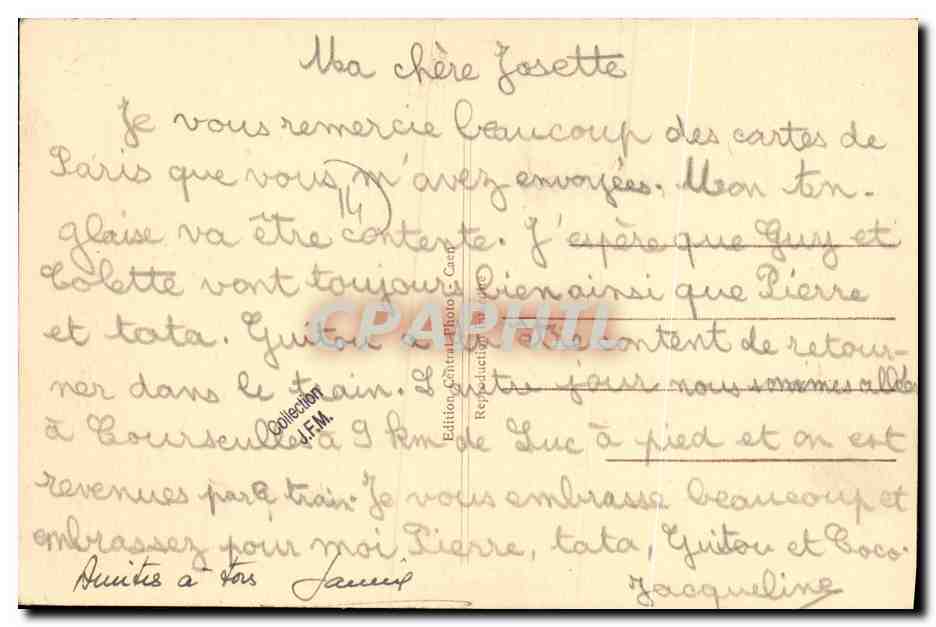 Ma chère Josette
Je vous remercie beaucoup des cartes de
Paris que vous m'avez envoyées. Mon An-
glaise va être contente. J'espère que Guy et
Colette vont toujours bien ainsi que Pierre
et tata. Guitou a être content de retour-
ner dans le train. L'autre jour nous sommes allées
à Courseulles à 9 km de Luc à pied et on est
revenues par le train. Je vous embrasse beaucoup et
embrassez pour moi Pierre, tata, Guitou et Coco.
Jacqueline
Amitiés à tous
14
Collection
J.F.M.
Edition Central-Photo - Caen
Reproduction interdite
CPAPHIL